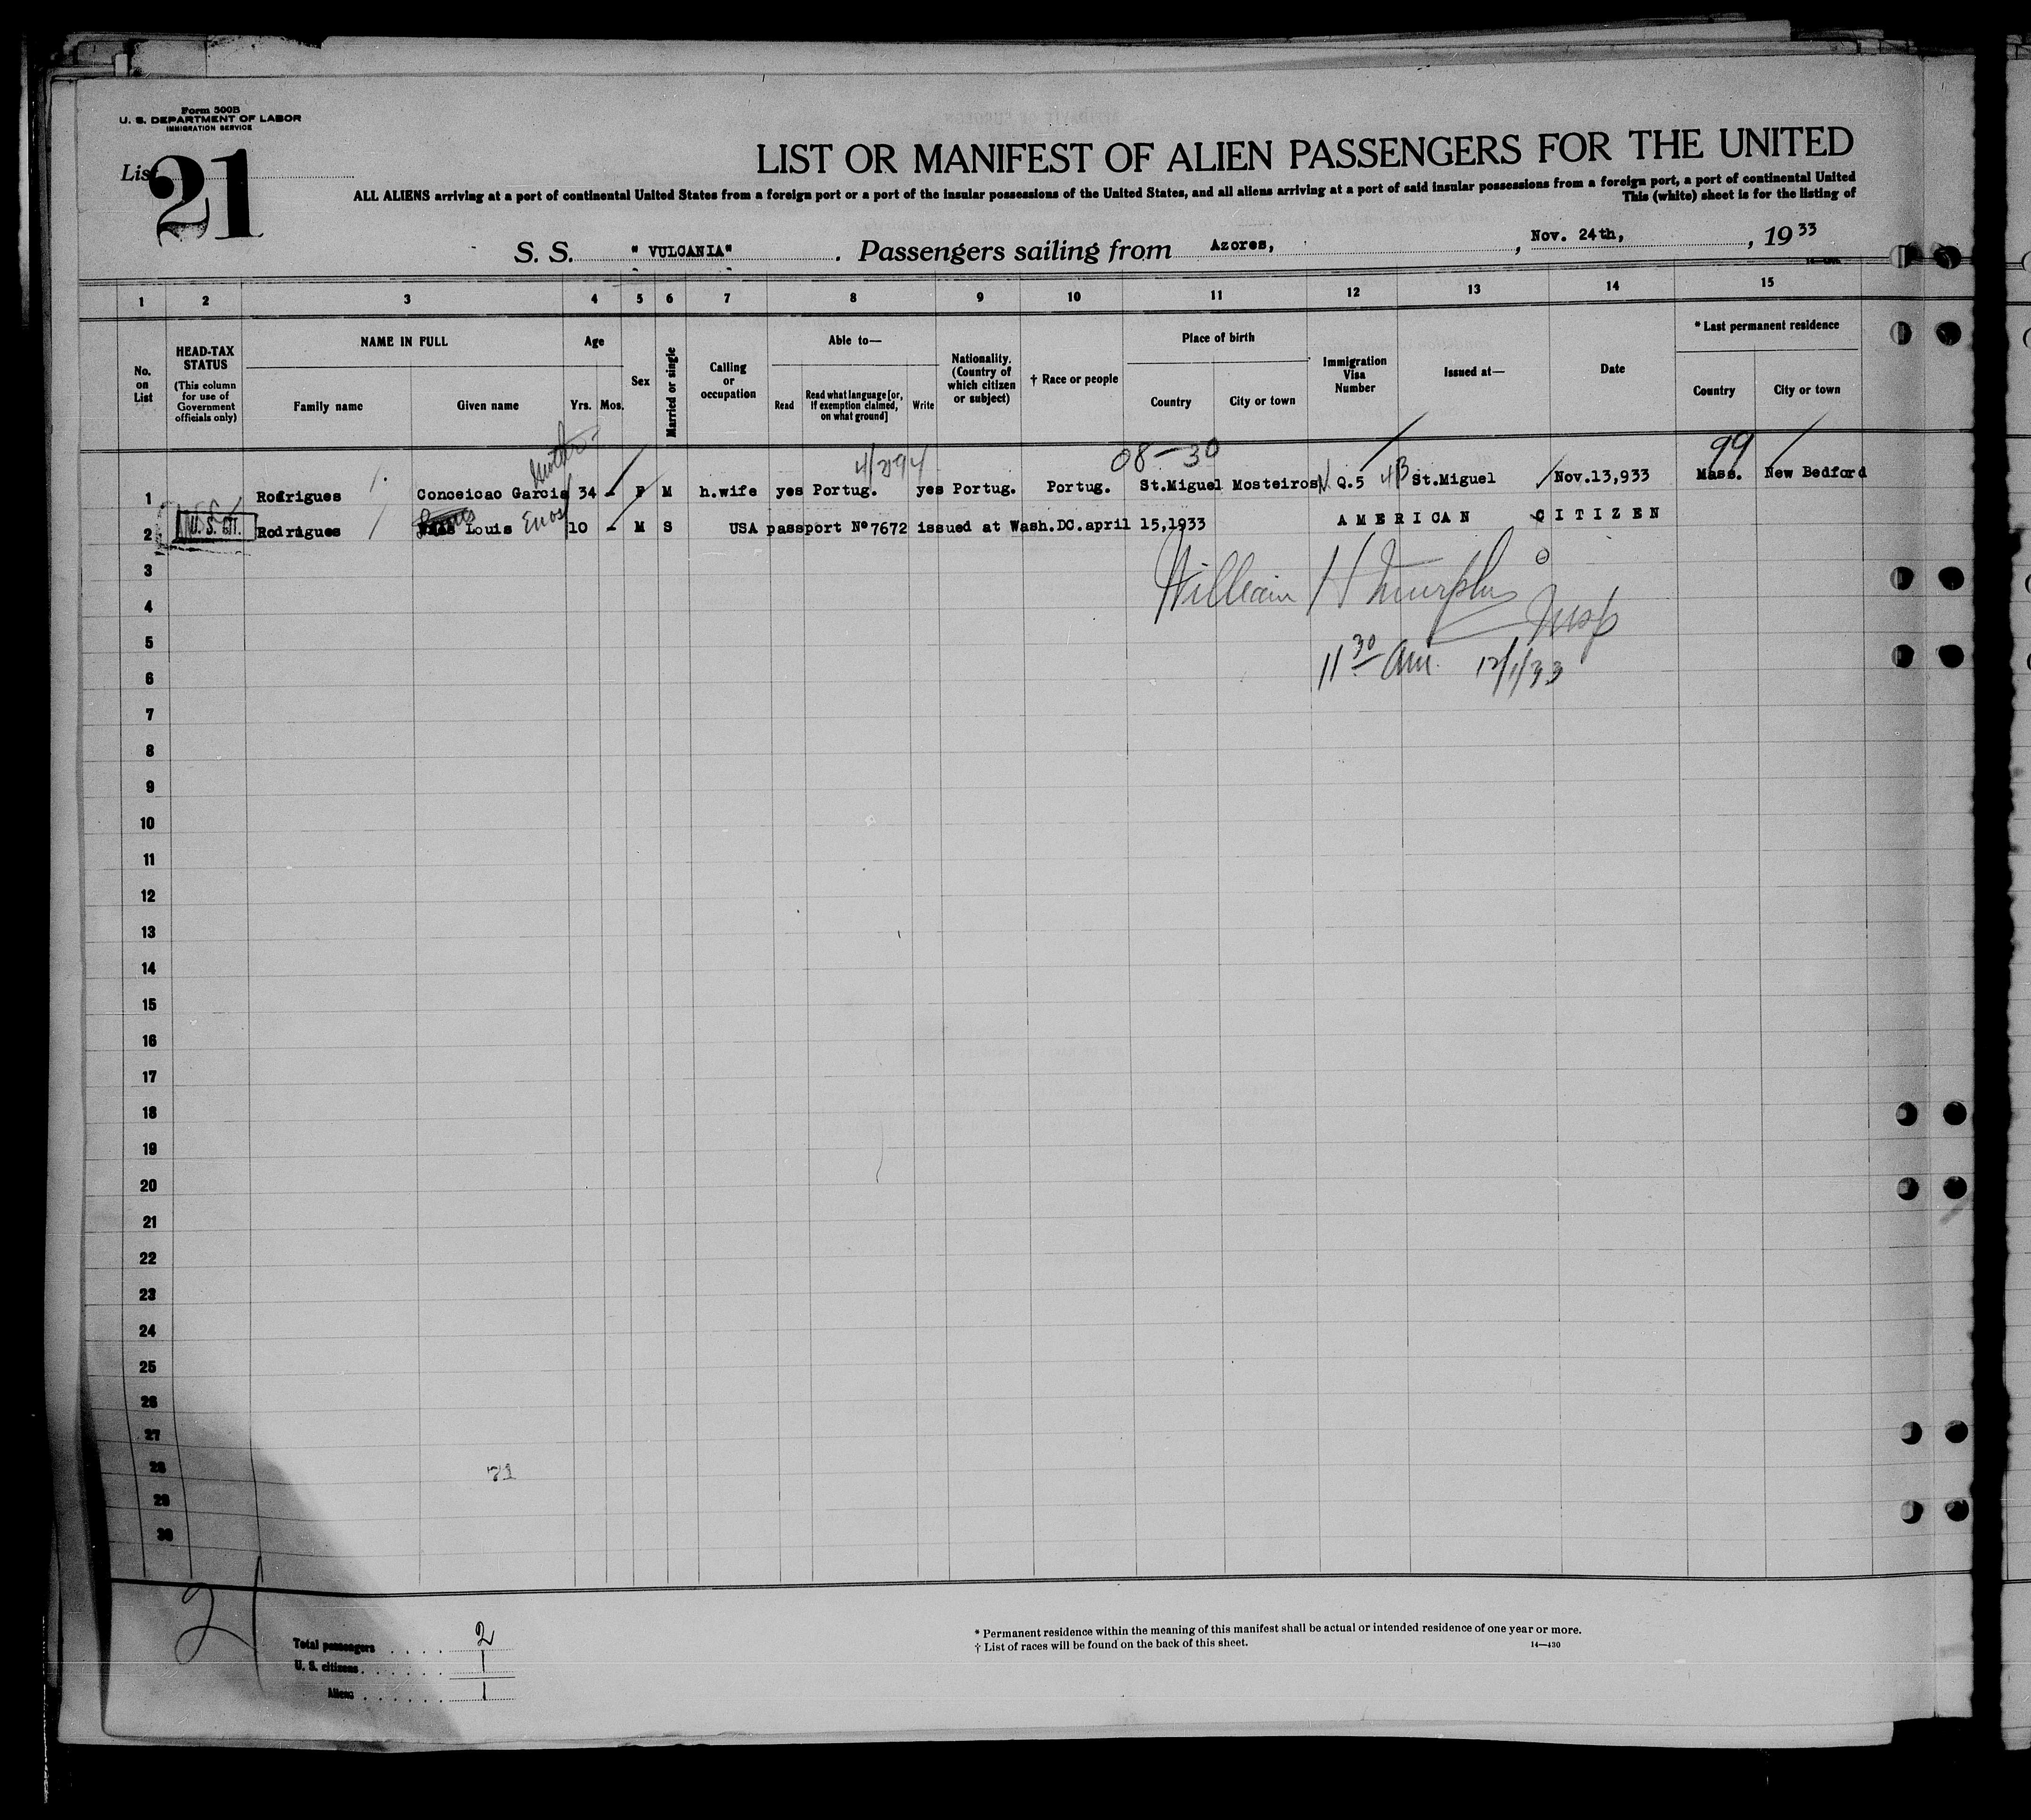 Form 500B
U. S. DEPARTMENT OF LABOR
IMMIGRATION SERVICE
List 21
LIST OR MANIFEST OF ALIEN PASSENGERS FOR THE UNITED
ALL ALIENS arriving at a port of continental United States from a foreign port or a port of the insular possessions of the United States, and all aliens arriving at a port of said insular possessions from a foreign port, a port of continental United
This (white) sheet is for the listing of
S. S. "VULCANIA". Passengers sailing from Azores, , Nov. 24th, , 1933
1 2 3 4 5 6 7 8 9 10 11 12 13 14 15
No. on List
HEAD-TAX STATUS (This column for use of Government officials only)
NAME IN FULL
Family name Given name
Age
Yrs. Mos.
Sex
Married or single
Calling or occupation
Able to—
Read Read what language [or, if exemption claimed, on what ground] Write
Nationality. (Country of which citizen or subject)
† Race or people
Place of birth
Country City or town
Immigration Visa Number
Issued at—
Date
* Last permanent residence
Country City or town
mother 08-30 99
1 Rodrigues Conceicao Garcia 34 - F M h.wife yes Portug. yes Portug. Portug. St.Miguel Mosteiros Q.5 4B St.Miguel Nov.13,933 Mass. New Bedford
2 U.S. CIT. Rodrigues Louis Enos 10 - M S USA passport Nº7672 issued at Wash.DC.april 15,1933 AMERICAN CITIZEN
3
William H Murphy
4
Insp
5
11 30 am. 12/1/33
6
7
8
9
10
11
12
13
14
15
16
17
18
19
20
21
22
23
24
25
26
27
28 71
29
30
21
Total passengers . . . . 2
U. S. citizens . . . . . . 1
Aliens . . . . . . 1
* Permanent residence within the meaning of this manifest shall be actual or intended residence of one year or more.
† List of races will be found on the back of this sheet. 14—430